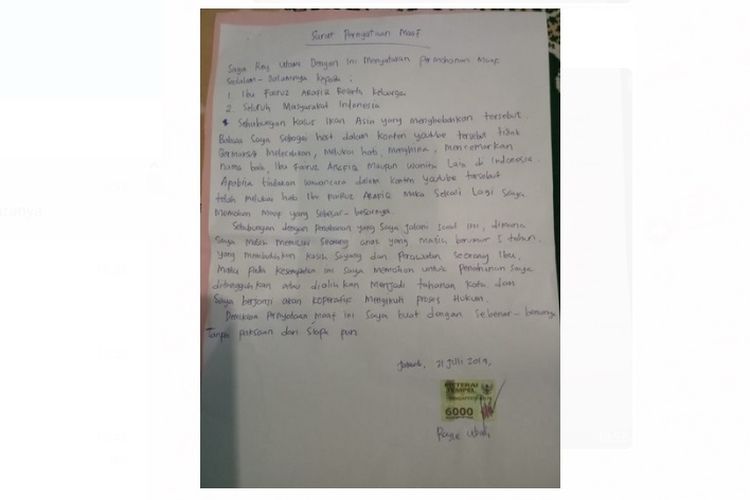 Surat Pernyataan Maaf
Saya Rey Utami Dengan Ini Menyatakan Permohonan Maaf
Sedalam-Dalamnya kepada :
1. Ibu Fairuz ARafiq Beserta keluarga
2. Seluruh Masyarakat Indonesia
Sehubungan Kasus Ikan Asin yang menghebohkan tersebut.
Bahwa Saya Sebagai host dalam konten youtube tersebut tidak
Bermaksud Melecehkan, Melukai hati, Menghina, Mencemarkan
nama baik, Ibu Fairuz ARafiq Maupun Wanita Lain di Indonesia.
Apabila tindakan wawancara dalam konten youtube tersebut
telah Melukai hati Ibu Fairuz ARafiq Maka Sekali Lagi Saya
Memohon Maaf yang Sebesar-besarnya.
Sehubungan dengan Penahanan yang Saya Jalani Saat Ini, dimana
Saya Masih Menyusui Seorang anak yang masih berumur 5 tahun.
yang Membutuhkan Kasih Sayang dan Perawatan Seorang Ibu,
Maka Pada Kesempatan ini Saya Memohon untuk Penahanan Saya
ditangguhkan atau dialihkan Menjadi tahanan Kota dan
Saya berjanji akan Koperatif Mengikuti Proses Hukum.
Demikian Pernyataan Maaf ini Saya buat dengan Sebenar-benarnya
Tanpa paksaan dari Siapa pun.
Jakarta, 21 Juli 2019,
METERAI
TEMPEL
6000
Utami